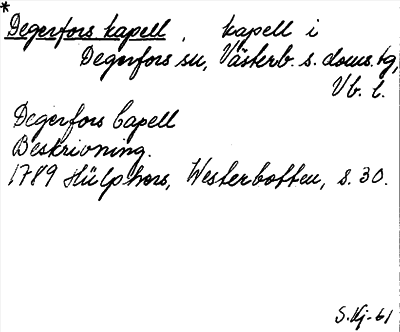 *
Degerfors kapell, kapell i
Degerfors sn, Västerb. s. doms. tg,
Vb. l.
Degerfors Capell
Beskrivning.
1789 Hülphers, Westerbotten, s. 30.
S. Kj -61